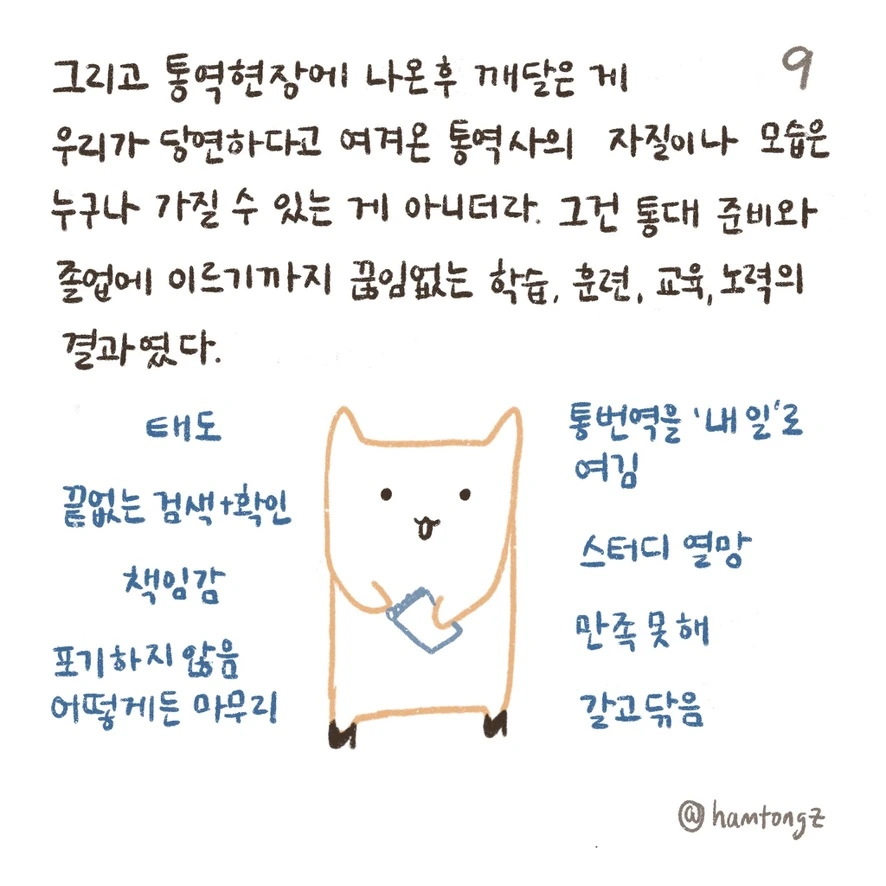 9
그리고 통역현장에 나온후 깨달은 게
우리가 당연하다고 여겨온 통역사의 자질이나 모습은
누구나 가질 수 있는 게 아니더라. 그건 통대 준비와
졸업에 이르기까지 끊임없는 학습, 훈련, 교육, 노력의
결과였다.
태도
끝없는 검색+확인
책임감
포기하지 않음
어떻게든 마무리
통번역을 '내 일'로
여김
스터디 열망
만족 못해
갈고닦음
@hamtongz